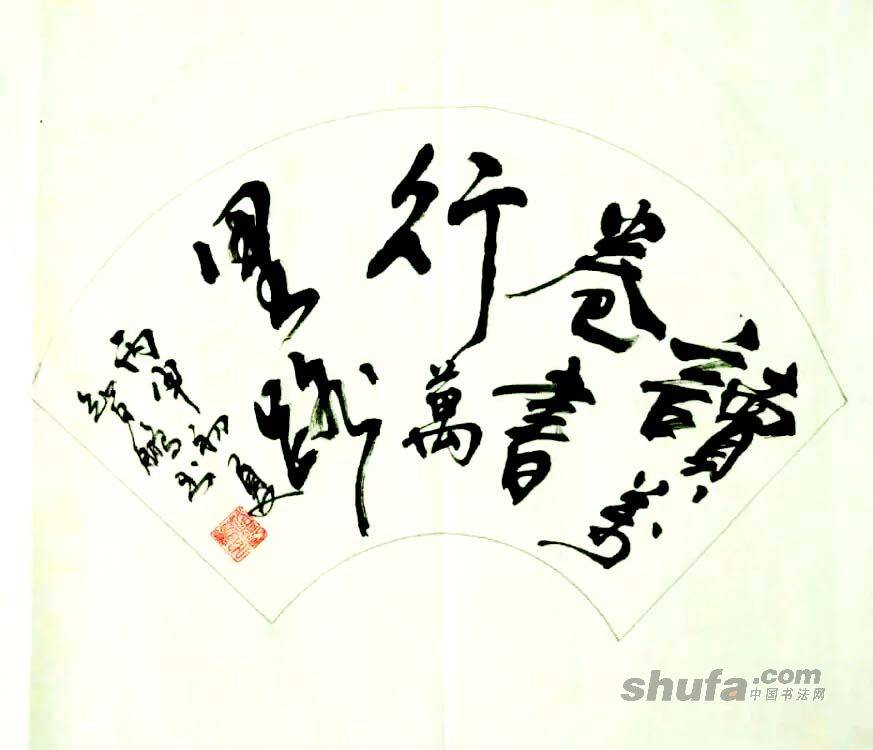 讀萬
卷書
行萬
里路
丙申初夏
鵬书
shufa.com
中国书法网